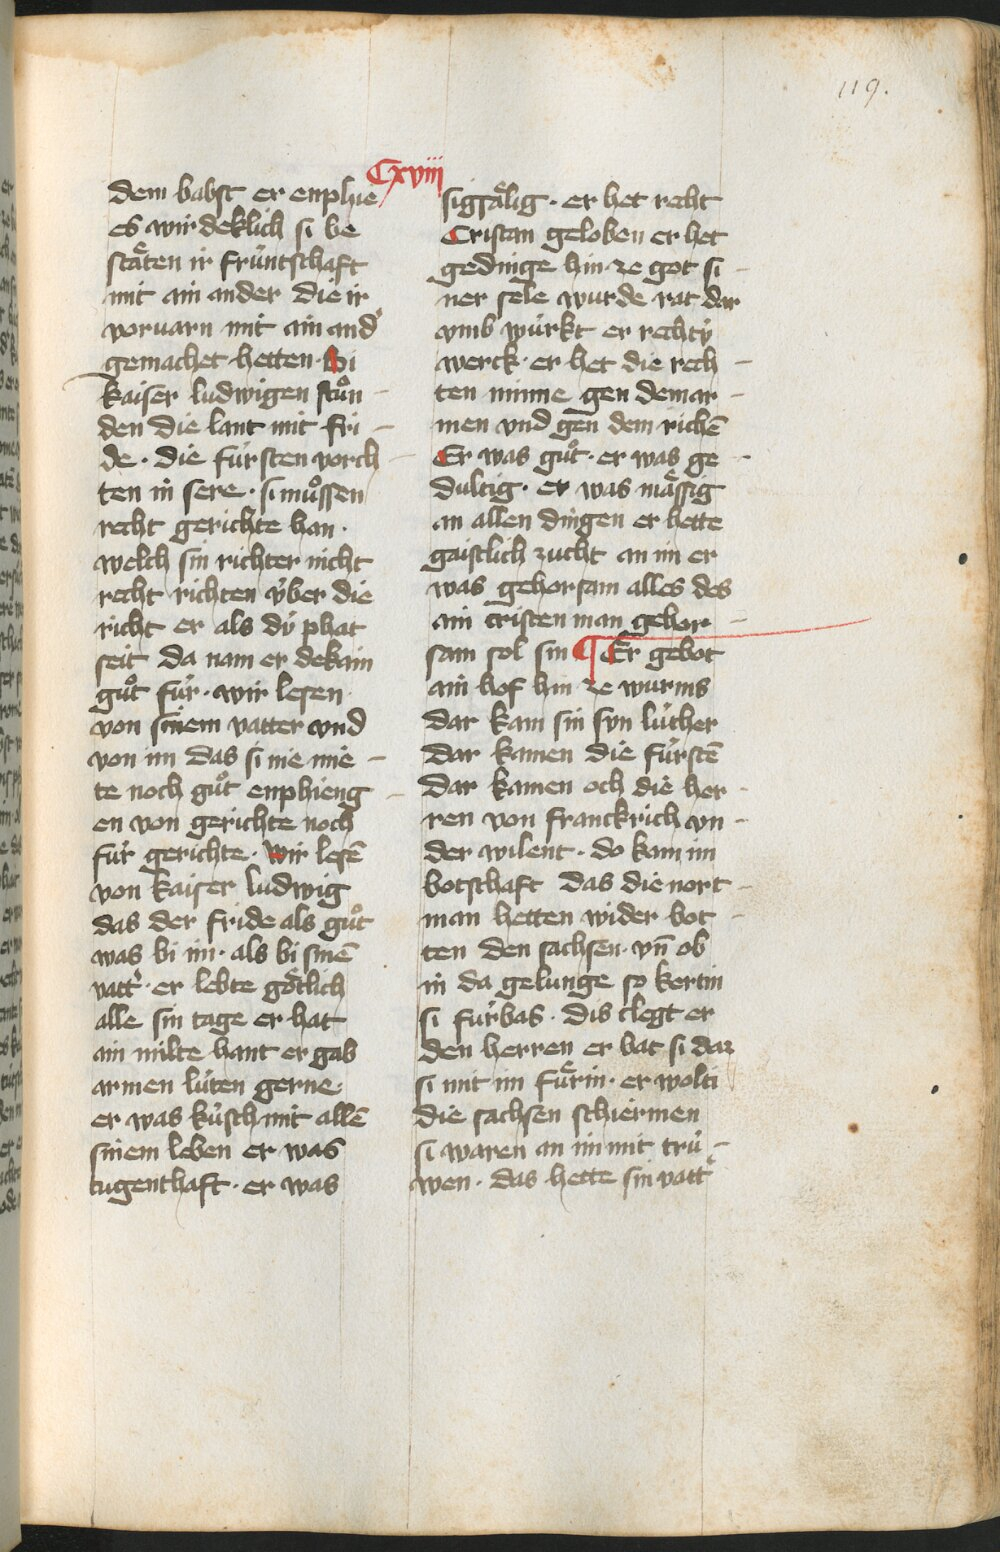 119.
Cxviii
dem babst er enphie
es wirdeklich si be
staͤten ir früntschaft
mit ain ander die ir
voruarn mit ain and᾽
gemachet hetten · Bi
kaiser ludwigen stuͦn
den die lant mit fri
de · die fürsten vorch
ten in sere · si muͦssen
recht gerichte han ·
welch sin richter nicht
recht richten ẏber die
richt er als dÿ phat
seit da nam er dekain
guͦt für · wir lesen
von sinem vatter vnd
von im das si nie mie
te noch guͦt enphieng
en von gerichte noch
für gerichte · Wir lesē
von kaiser ludwig
das der fride als guͦt
was bi im · als bi sinē
vatt᾽ · er lebte goͤtlich
alle sin tage er hat
ain milte hant er gab
armen lüten gerne ·
er was küsch mit allē
sinem leben er was
tugenthaft · er was
sigsaͤlig · er het recht
Cristan geloben er het
gedinge hin ze got si
ner sele wurde rat dar
vmb würkt er rechtÿ
werck · er het die rech
ten minne gen dem ar
men vnd gen dem richē
Er was guͦt · er was ge
dultig · er was maͤssig
an allen dingen er hette
gaistlich zucht an im er
was gehorsam alles des
ain cristen man gehor
sam sol sin ¶ Er gebot
ain hof hin ze wurms
dar kam sin syn lüther
dar kamen die fürstē
dar kamen och die her
ren von franckrich vn
der wilent · do kam im
botschaft das die nort
man hetten wider bot
ten den sachsen · vn̄ ob
in da gelunge so kertin
si fürbas · dis clegt er
den herren er bat si daz
si mit im fuͤrin · er wolti
die sachsen schiermen
si waren an im mit trü
wen · das hette sin vatt᾽